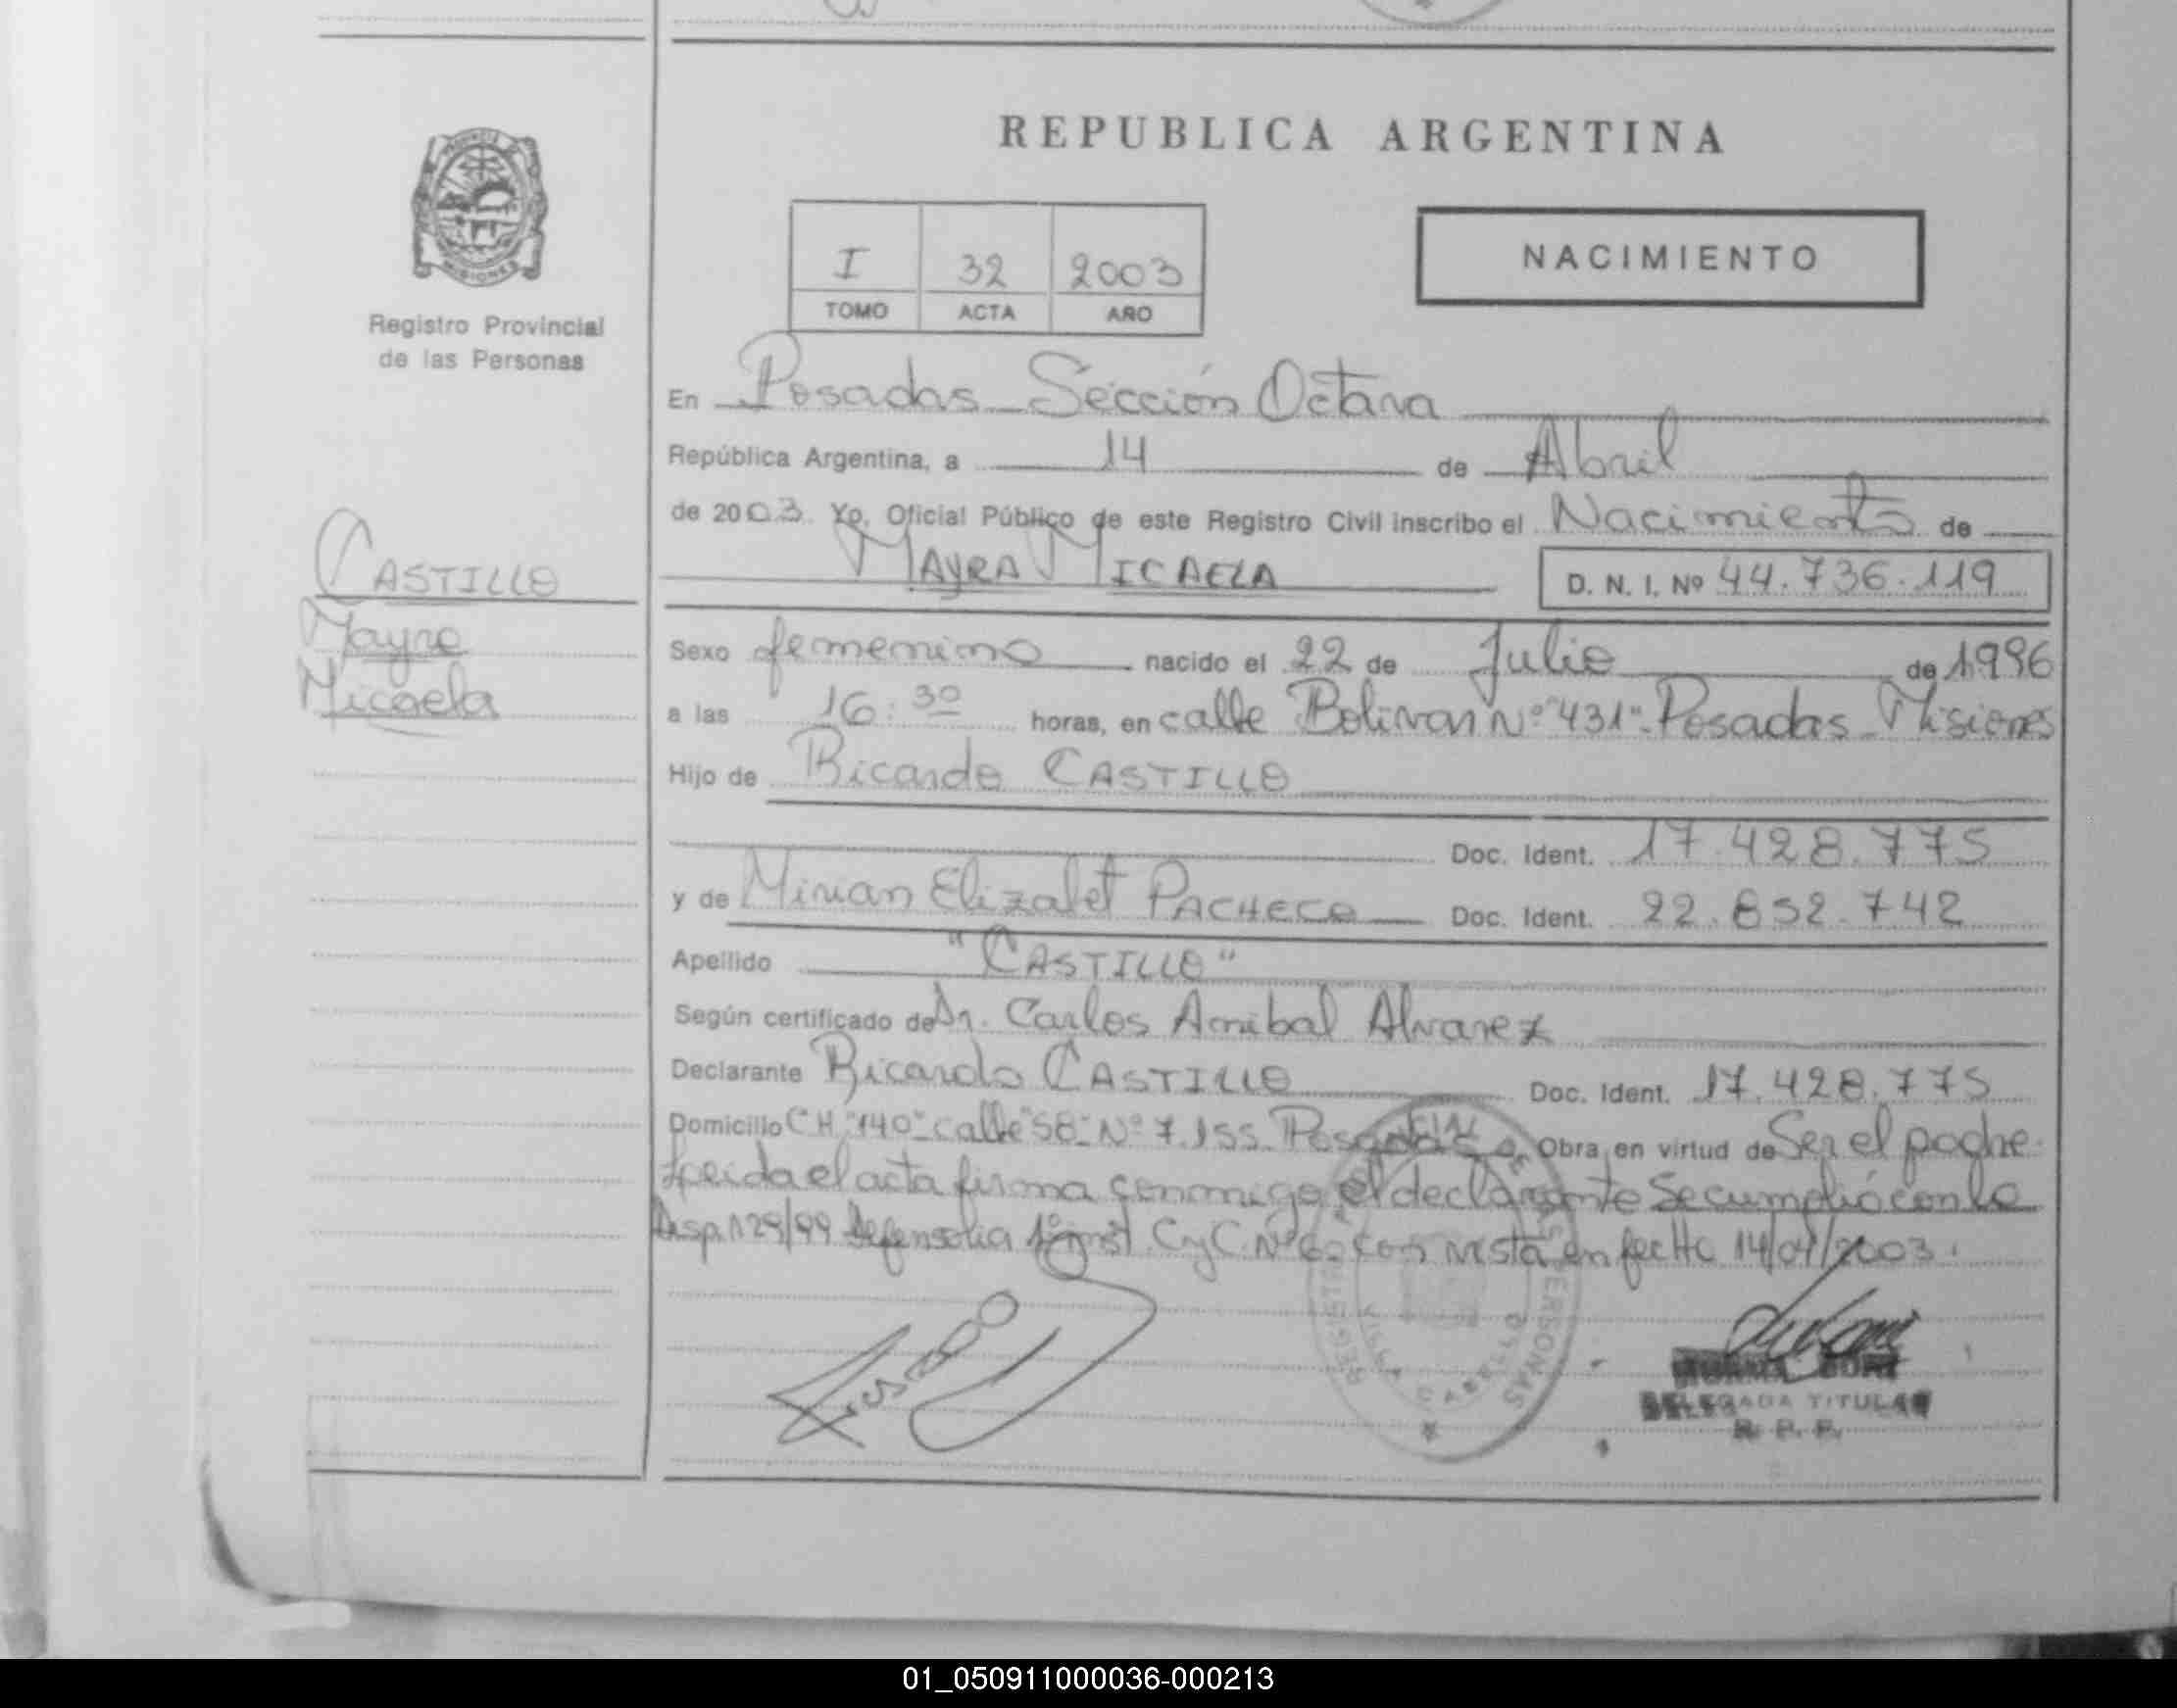 REPUBLICA ARGENTINA
PROVINCIA
MISIONES
Registro Provincial
de las Personas
I 32 2003
TOMO ACTA AÑO
NACIMIENTO
En Posadas - Sección Octava
República Argentina, a 14 de Abril
de 2003. Yo, Oficial Público de este Registro Civil inscribo el Nacimiento de
MAYRA MICAELA
D. N. I. Nº 44.736.119
CASTILLO
Mayra
Micaela
Sexo femenino nacido el 22 de Julio de 1996
a las 16:30 horas, en calle Bolivar Nº "431" - Posadas - Misiones
Hijo de Ricardo CASTILLO
Doc. Ident. 17.428.775
y de Mirian Elizabet PACHECO Doc. Ident. 22.852.742
Apellido "CASTILLO"
Según certificado de Dr. Carlos Anibal Alvarez
Declarante Ricardo CASTILLO Doc. Ident. 17.428.775
Domicilio CH "140" - calle "58" - Nº 7.155 Posadas Obra en virtud de Ser el padre
Leida el acta firma conmigo el declarante Se cumplió con la
Disp. 129/99 Defensoria 1º Inst. C y C. Nº con vista en fecha 14/04/2003.
REGISTRO PERSONAS
VILLA CABELLO
NORMA
DELEGADA TITULAR
R. P. P.
01_050911000036-000213